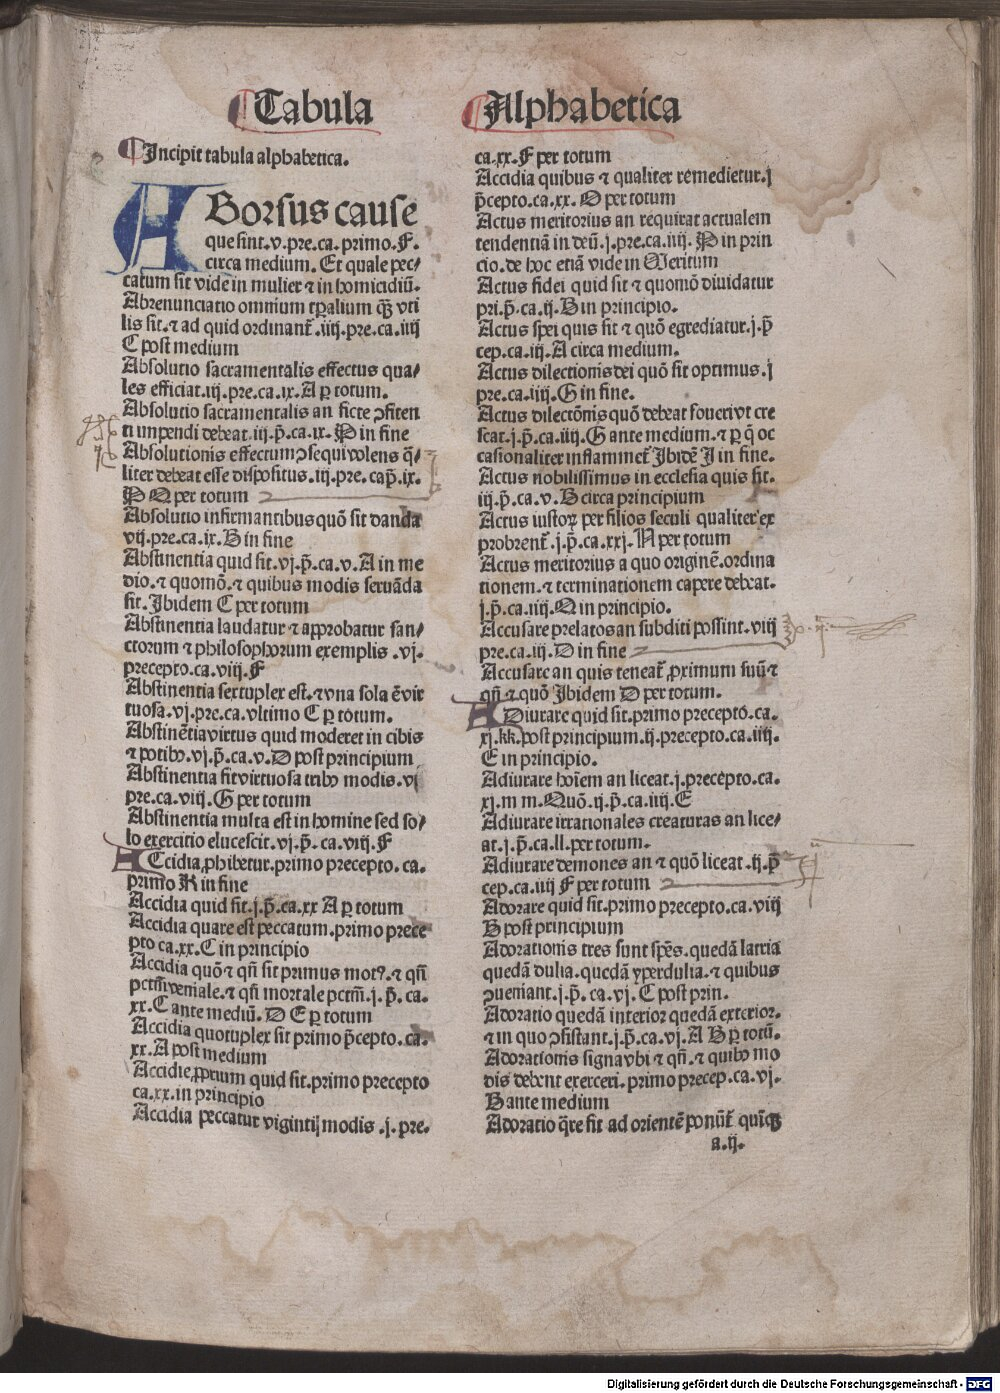 Tabula Alphabetica
Incipit tabula alphabetica.
ABorsus cause
que sint.v.pre.ca.primo.F.
circa medium. Et quale pec⸗
catum sit vide in mulier ⁊ in homicidiū.
Abrenunciatio omnium tp̄alium qƺ vti
lis sit.⁊ ad quid ordinant̄.iiij.pre.ca.iiij
C post medium
Absolutio sacramentalis effectus qua⸗
les efficiat.iij.pre.ca.ix.A ꝑ totum.
Absolutio sacramentalis an ficte ↄfiten
ti impendi debeat.iij.p̄.ca.ix.P in fine
Absolutionis effectum ↄsequi volens q̄⸗
liter debeat esse dispositus.iij.pre.cap̄.ix.
P Q per totum
Absolutio infirmantibus quō sit danda
vij.pre.ca.ix.B in fine
Abstinentia quid sit.vj.p̄.ca.v.A in me
dio.⁊ quomō.⁊ quibus modis seruāda
sit.Ibidem C per totum
Abstinentia laudatur ⁊ approbatur san⸗
ctorum ⁊ philosophorum exemplis.vj.
precepto.ca.viij.F
Abstinentia sextupler est.⁊ vna sola ē vir
tuosa.vj.pre.ca.vltimo C ꝑ totum.
Abstinētia virtus quid moderet in cibis
⁊ potibꝰ.vj.p̄.ca.v.D post principium
Abstinentia fit virtuosa tribꝰ modis.vj
pre.ca.viij.G per totum
Abstinentia multa est in homine sed so⸗
lo exercitio elucescit.vj.p̄.ca.viij.F
ACcidia ꝓhibetur.primo precepto.ca.
primo K in fine
Accidia quid sit.j.p̄.ca.xx A ꝑ totum
Accidia quare est peccatum.primo prece
pto ca.xx.C in principio
Accidia quō ⁊ qn̄ sit primus motꝰ.⁊ qn̄
pctm̄ veniale.⁊ qn̄ mortale pctm̄.j.p̄.ca.
xx.C ante mediū.D E ꝑ totum
Accidia quotuplex sit primo p̄cepto.ca.
xx.A post medium
Accidie ꝓprium quid sit.primo precepto
ca.xx.in principio
Accidia peccatur vigintij modis.j.pre.
ca.xx.F per totum
Accidia quibus ⁊ qualiter remedietur.j
p̄cepto.ca.xx.O per totum
Actus meritorius an requirat actualem
tendentiā in deū.j.pre.ca.iiij.P in prin
cio.de hoc etiā vide in Meritum
Actus fidei quid sit ⁊ quomō diuidatur
pri.p̄.ca.ij.B in principio.
Actus spei quis sit ⁊ quō egrediatur.j.p̄
cep.ca.iij.A circa medium.
Actus dilectionis dei quō sit optimus.j
pre.ca.iiij.G in fine.
Actus dilectōnis quō debeat foueri vt cre
scat.j.p̄.ca.iiij.G ante medium.⁊ ꝑ q̄ oc
casionaliter inflammet̄ Ibidē I in fine.
Actus nobilissimus in ecclesia quis sit.
iij.p̄.ca.v.B circa principium
Actus iustoꝝ per filios seculi qualiter ex
probrent̄.j.p̄.ca.xxj.N per totum
Actus meritorius a quo originē.ordina
tionem.⁊ terminationem capere debeat.
j.p̄.ca.iiij.Q in principio.
Accusare prelatos an subditi possint.viij
pre.ca.iij.D in fine
Accusare an quis teneat̄ ꝓximum suū ⁊
qn̄ ⁊ quō Ibidem D per totum.
ADiurare quid sit.primo precepto.ca.
xj.kk.post principium.ij.precepto.ca.iiij.
E in principio.
Adiurare hoiem an liceat.j.precepto.ca.
xj.m m.Quō.ij.p̄.ca.iiij.E
Adiurare irrationales creaturas an lice⸗
at.j.p̄.ca.ll.per totum.
Adiurare demones an ⁊ quō liceat.ij.p̄
cep.ca.iiij F per totum
Adorare quid sit.primo precepto.ca.viij
B post principium
Adorationis tres sunt sp̄es.quedā latria
quedā dulia.quedā yperdulia.⁊ quibus
ↄueniant.j.p̄.ca.vj.C post prin.
Adoratio quedā interior quedā exterior.
⁊ in quo ↄsistant.j.p̄.ca.vj.A B ꝑ totū.
Adorationis signa vbi ⁊ qn̄.⁊ quibꝰ mo
dis debent exerceri.primo precep.ca.vj.
B ante medium
Adoratio q̄re fit ad orientē ponūt̄ quīqƺ
a.ij.
Digitalisierung gefördert durch die Deutsche Forschungsgemeinschaft - DFG